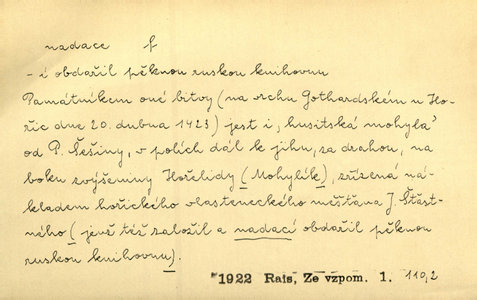 nadace f
- í obdařil pěknou ruskou knihovnu
Památníkem oné bitvy (na vrchu Gothardském u Ho-
řic dne 20. dubna 1423) jest i, husitská mohyla'
od P. Šešiny, v polích dál k jihu, za drahou, na
boku zvýšeniny Hořelidy (Mohylík), zřízená ná-
kladem hořického vlasteneckého měšťana J. Šťast-
ného (jenž též založil a nadací obdařil pěknou
ruskou knihovnu).
*1922 Rais, Ze vzpom. 1. 110,2